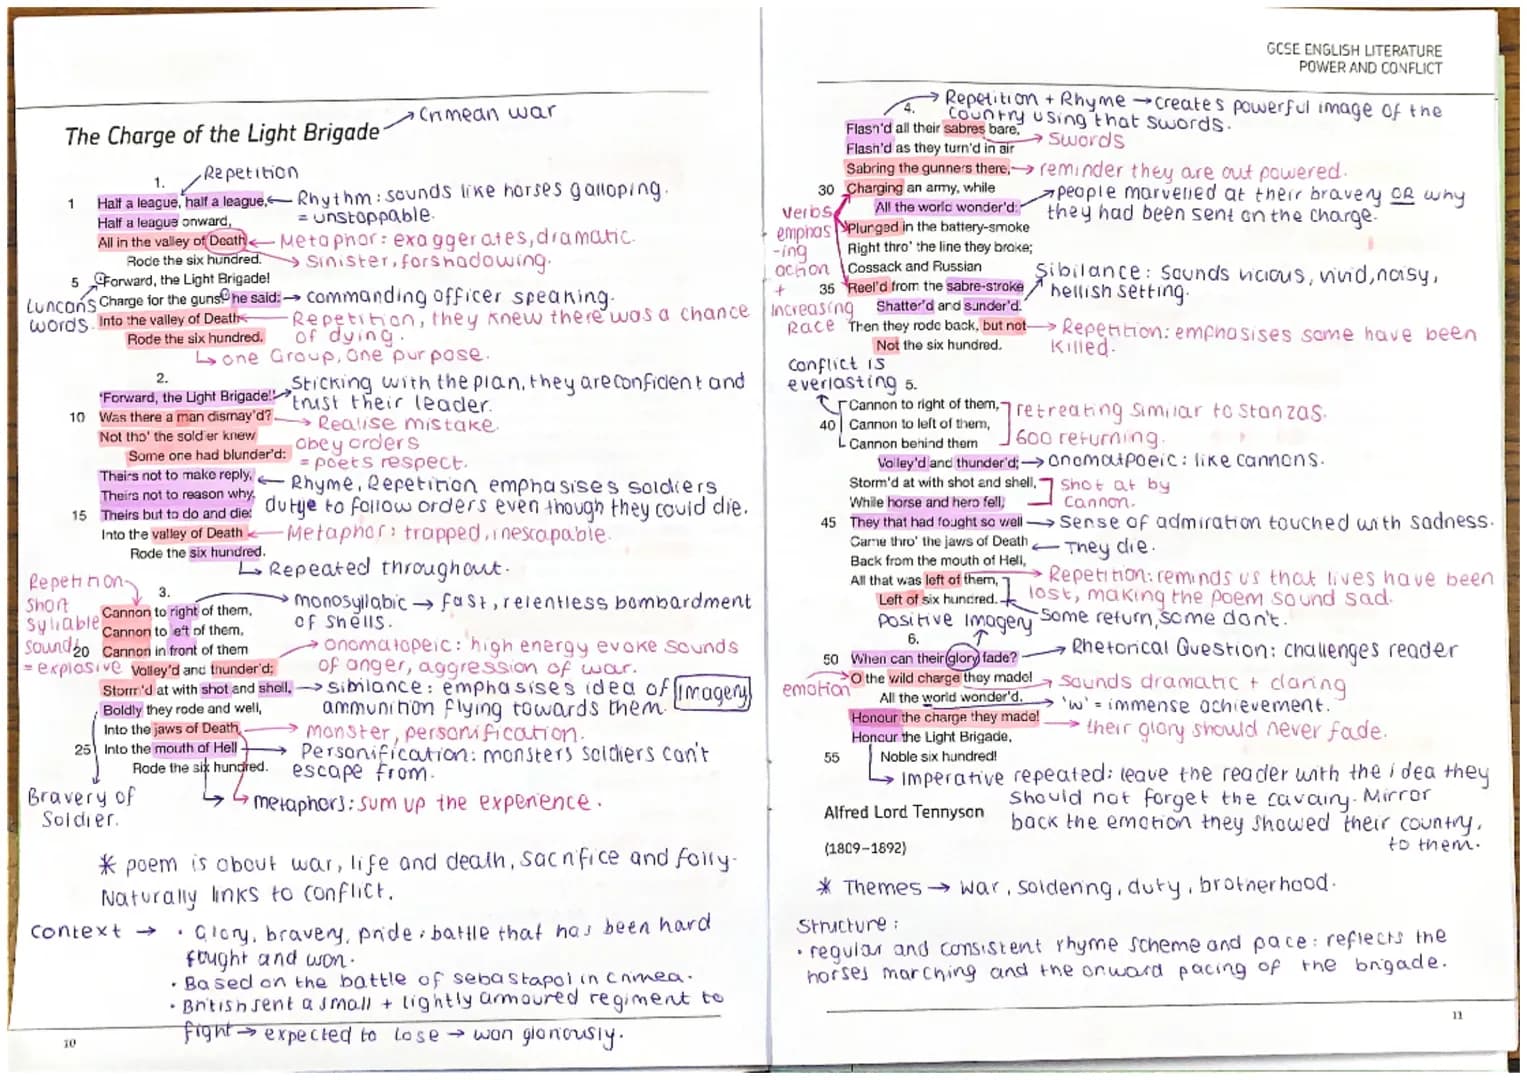 The Charge of the Light Brigade
→ Crimean war
1.
Repetition
1 Half a league, half a league,
Rhythm: sounds like horses galloping.
= unstoppable.
Half a league onward,
All in the valley of Death
Metaphor: exaggerates, dramatic.
Rode the six hundred.
→ Sinister, forshadowing.
5 'Forward, the Light Brigade!
Charge for the guns!' he said:
→ commanding officer speaking.
Luncans words.
Into the valley of Death
Repetition, they knew there was a chance
of dying.
Rode the six hundred.
↳ one Group, one purpose.
2.
'Forward, the Light Brigade!'
Sticking with the plan, they are confident and
trust their leader.
10 Was there a man dismay'd?
→ Realise mistake.
Not tho' the soldier knew
obey orders
Some one had blunder'd:
= poets respect.
Theirs not to make reply,
Rhyme, Repetition emphasises soldiers
Theirs not to reason why,
dutye to follow orders even though they could die.
15 Theirs but to do and die:
Into the valley of Death
Metaphor: trapped, inescapable.
Rode the six hundred.
↳ Repeated throughout.
3.
Repetition
short
syllable
sound
= explosive
Cannon to right of them,
→ monosyllabic → fast, relentless bombardment
of shells.
Cannon to left of them,
20 Cannon in front of them
→ onomatopeic: high energy evoke sounds
of anger, aggression of war.
Volley'd and thunder'd;
Storm'd at with shot and shell,
→ sibilance: emphasises idea of
ammunition flying towards them.
Imagery
Boldly they rode and well,
Into the jaws of Death,
→ monster, personification.
25 Into the mouth of Hell
→ Personification: monsters soldiers can't
escape from.
Rode the six hundred.
Bravery of
Soldier.
metaphors: sum up the experience.
* poem is about war, life and death, sacrifice and folly.
Naturally links to conflict.
context →
· Glory, bravery, pride: battle that has been hard
fought and won.
· Based on the battle of sebastapol in Crimea.
· British sent a small + lightly armoured regiment to
fight → expected to lose → won gloriously.
10
GCSE ENGLISH LITERATURE
POWER AND CONFLICT
4.
→ Repetition + Rhyme → creates powerful image of the
country using that swords.
Flash'd all their sabres bare,
→ Swords
Flash'd as they turn'd in air
Sabring the gunners there,
→ reminder they are out powered.
30 Charging an army, while
All the world wonder'd:
people marvelled at their bravery OR why
they had been sent on the charge.
verbs
emphas
-ing
action
+
increasing
Race
Plunged in the battery-smoke
Right thro' the line they broke;
Cossack and Russian
35 Reel'd from the sabre-stroke
Sibilance: Sounds vicious, vivid, noisy,
hellish setting.
Shatter'd and sunder'd.
Then they rode back, but not
→ Repetition: emphasises some have been
killed.
Not the six hundred.
conflict is
everlasting
5.
Cannon to right of them,
retreating similar to stanza 3.
40 Cannon to left of them,
Cannon behind them
600 returning.
Volley'd and thunder'd;
→ onomatpoeic: like cannons.
Storm'd at with shot and shell,
Shot at by
Cannon.
While horse and hero fell,
45 They that had fought so well
→ Sense of admiration touched with sadness.
Came thro' the jaws of Death
← They die.
Back from the mouth of Hell,
All that was left of them,
→ Repetition: reminds us that lives have been
lost, making the poem sound sad.
Left of six hundred.
Some return, some don't.
positive Imagery
6.
50 When can their glory fade?
→ Rhetorical Question: challenges reader
O the wild charge they made!
emotion
→ sounds dramatic + daring
All the world wonder'd.
→ 'w' = immense achievement.
Honour the charge they made!
→ their glory should never fade.
Honour the Light Brigade,
55 Noble six hundred!
↳ Imperative repeated: leave the reader with the idea they
should not forget the cavalry. Mirror
back the emotion they showed their country,
to them.
Alfred Lord Tennyson
(1809–1892)
* Themes → war, soldering, duty, brotherhood.
Structure:
· regular and consistent rhyme scheme and pace: reflects the
horses marching and the onward pacing of the brigade.
11